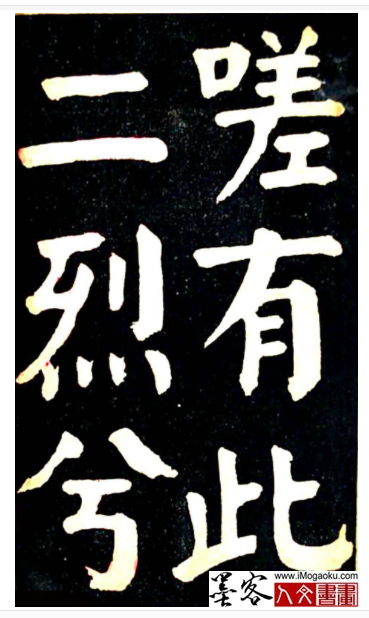 嗟有此
二烈兮
墨客
www.iMogaoku.com
人文書畫